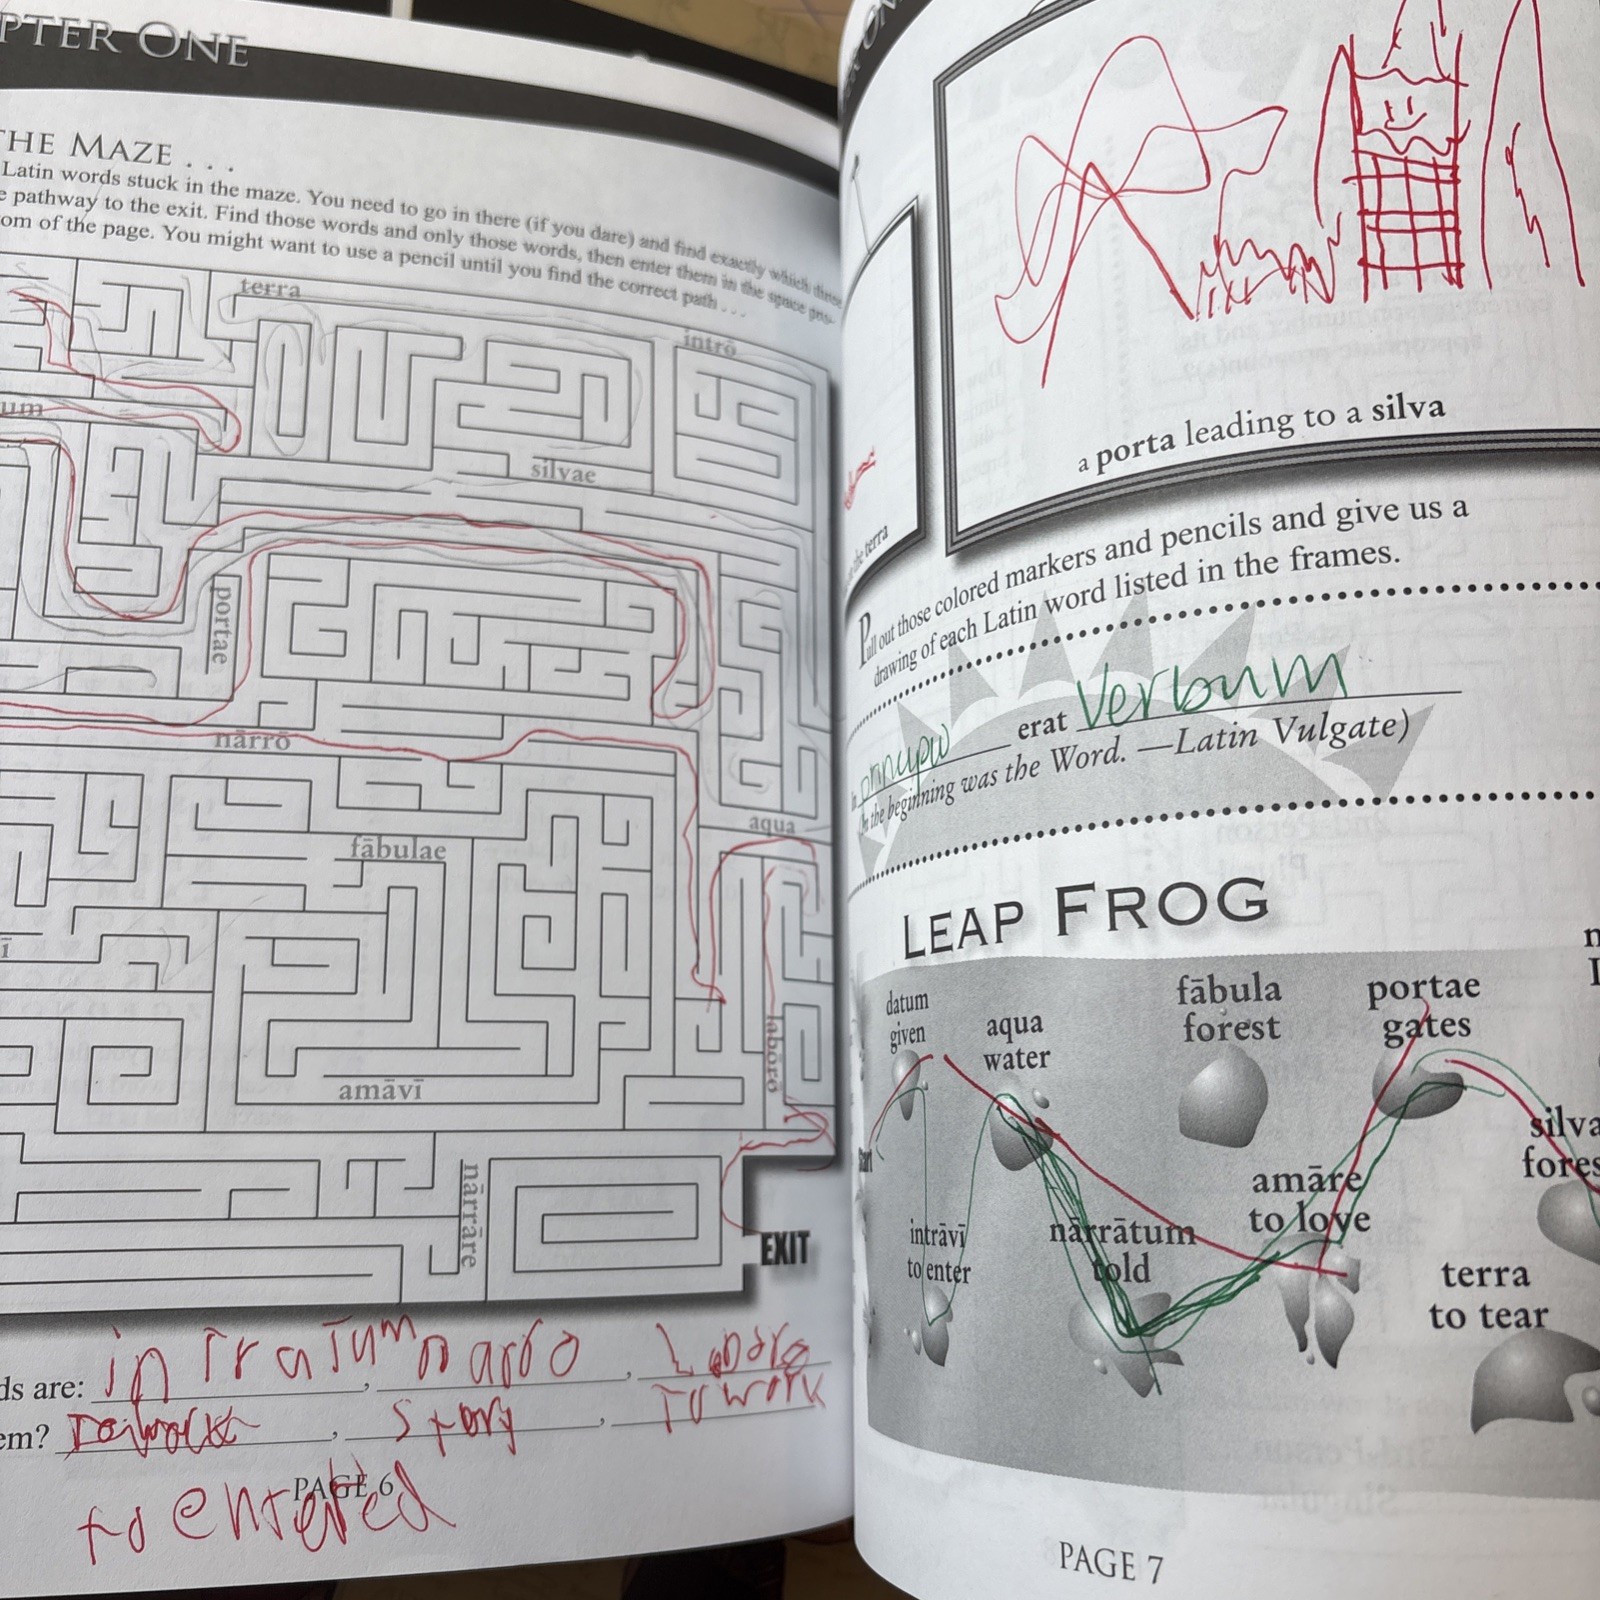 PTER ONE
THE MAZE . . .
Latin words stuck in the maze. You need to go in there (if you dare) and find exactly which three
e pathway to the exit. Find those words and only those words, then enter them in the space pro-
om of the page. You might want to use a pencil until you find the correct path . . .
terra
intrō
um
silvae
portae
nārrō
aqua
fābulae
ī
laborō
amāvī
nārrāre
EXIT
ds are: intratum, narro, Laboro
em? story, To work
to entered
PAGE 6
the terra
a porta leading to a silva
Pull out those colored markers and pencils and give us a
drawing of each Latin word listed in the frames.
In principio erat Verbum
(In the beginning was the Word. —Latin Vulgate)
LEAP FROG
datum
given
aqua
water
fābula
forest
portae
gates
start
intrāvī
to enter
nārrātum
told
amāre
to love
silva
fores
terra
to tear
PAGE 7